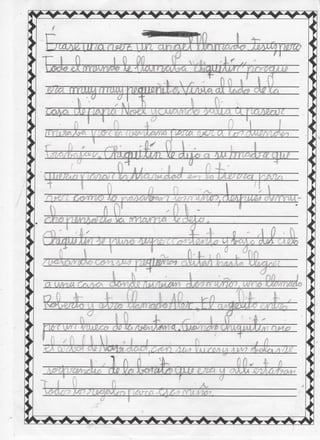 Érase una vez un angel llamado Jesús, pero
todo el mundo le llamaba "chiquitín" porque
era muy muy pequeñito. Vivia al lado de la
casa de papa Noel y cuando salia a pasear
miraba por la ventana para ver a los duendes
trabajar. Chiquitín le dijo a su madre que
queria pasar la Navidad en la tierra para
ver como lo pasaban los niños, despues de mu-
cho pensarlo la mamá le dejo.
Chiquitín se puso super contento y bajo del cielo
volando con sus pequeñas alitas hasta llegar
a una casa donde vivian dos niños, uno llamado
Roberto y otro llamado Alex. El angelito entró
por un hueco de la ventana. Cuando chiquitín vio
el arbol de Navidad, con sus luces y sus bolas se
sorprendio de lo bonito que era y alli estaban
todos los regalos para esos niños.